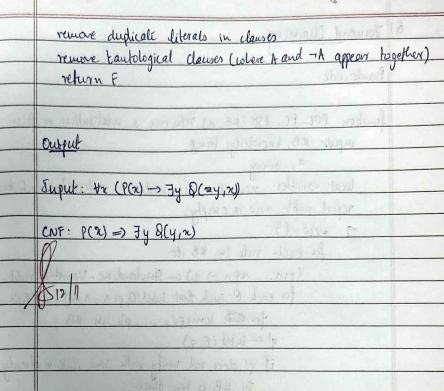 remove duplicate literals in clauses
remove tautological clauses (where A and ¬A appear together)
return F
Output
Input: ∀x (P(x) → ∃y Q(zy,x))
CNF: P(x) ⇒ ∃y Q(y,x)
12/11